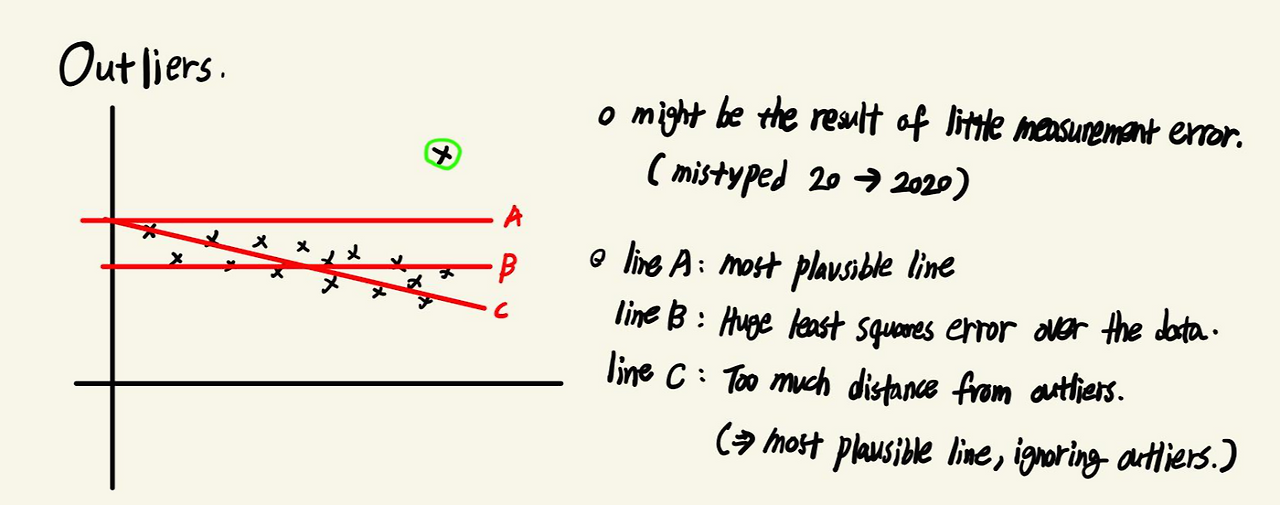 Outliers.
A
B
C
o might be the result of little measurement error.
(mistyped 20 → 2020)
o line A: most plausible line
line B: Huge least squares error over the data.
line C: Too much distance from outliers.
(⇒ most plausible line, ignoring outliers.)